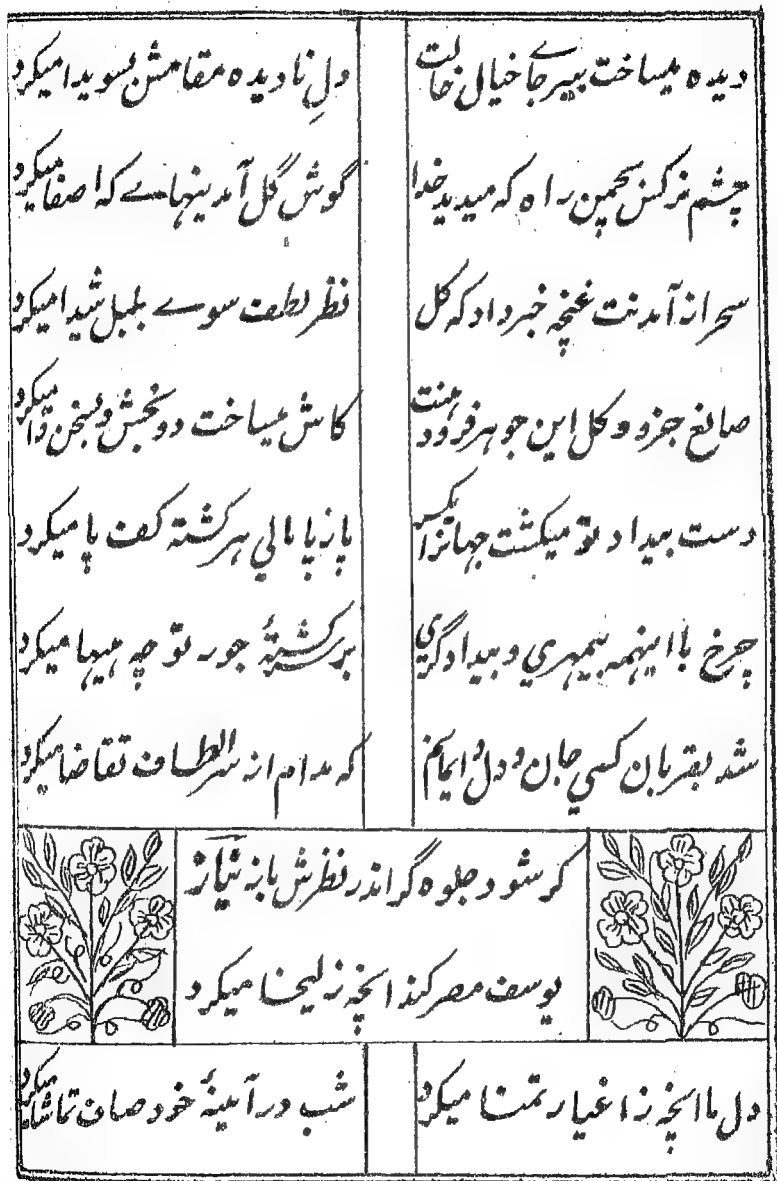 دیده میساخت بہیر جاے خیال خالت
دل نادیده مقامش بسویدا میکرد
چشم نرکس بچمن راه که میدید خدا
گوش گل آمد ینہاے که اصفا میکرد
سحر از آمدنت غنچه خبر داد که کل
نظر لطف سوے بلبل شیدا میکرد
صانع جزو و کل این جوهر فرد دهنت
کاش میساخت دو بخش و بسخن وا میکرد
دست بیداد تو میکشت جهانرا یکسر
پا ز پامالي هر کشتۀ کف پا میکرد
چرخ با اینهمه بیمهري و بیدادگري
بر کشتۀ جور تو چه هیها میکرد
شد بقربان کسي جان و دل و ایمانم
که مدام از سر الطاف تقاضا میکرد
کر شود جلوه گر اندر نظرش باز نیاز
یوسف مصر کند انچه زلیخا میکرد
دل ما انچه ز اغیار تمنا میکرد
شب در آئینۀ خود صاف تماشا میکرد